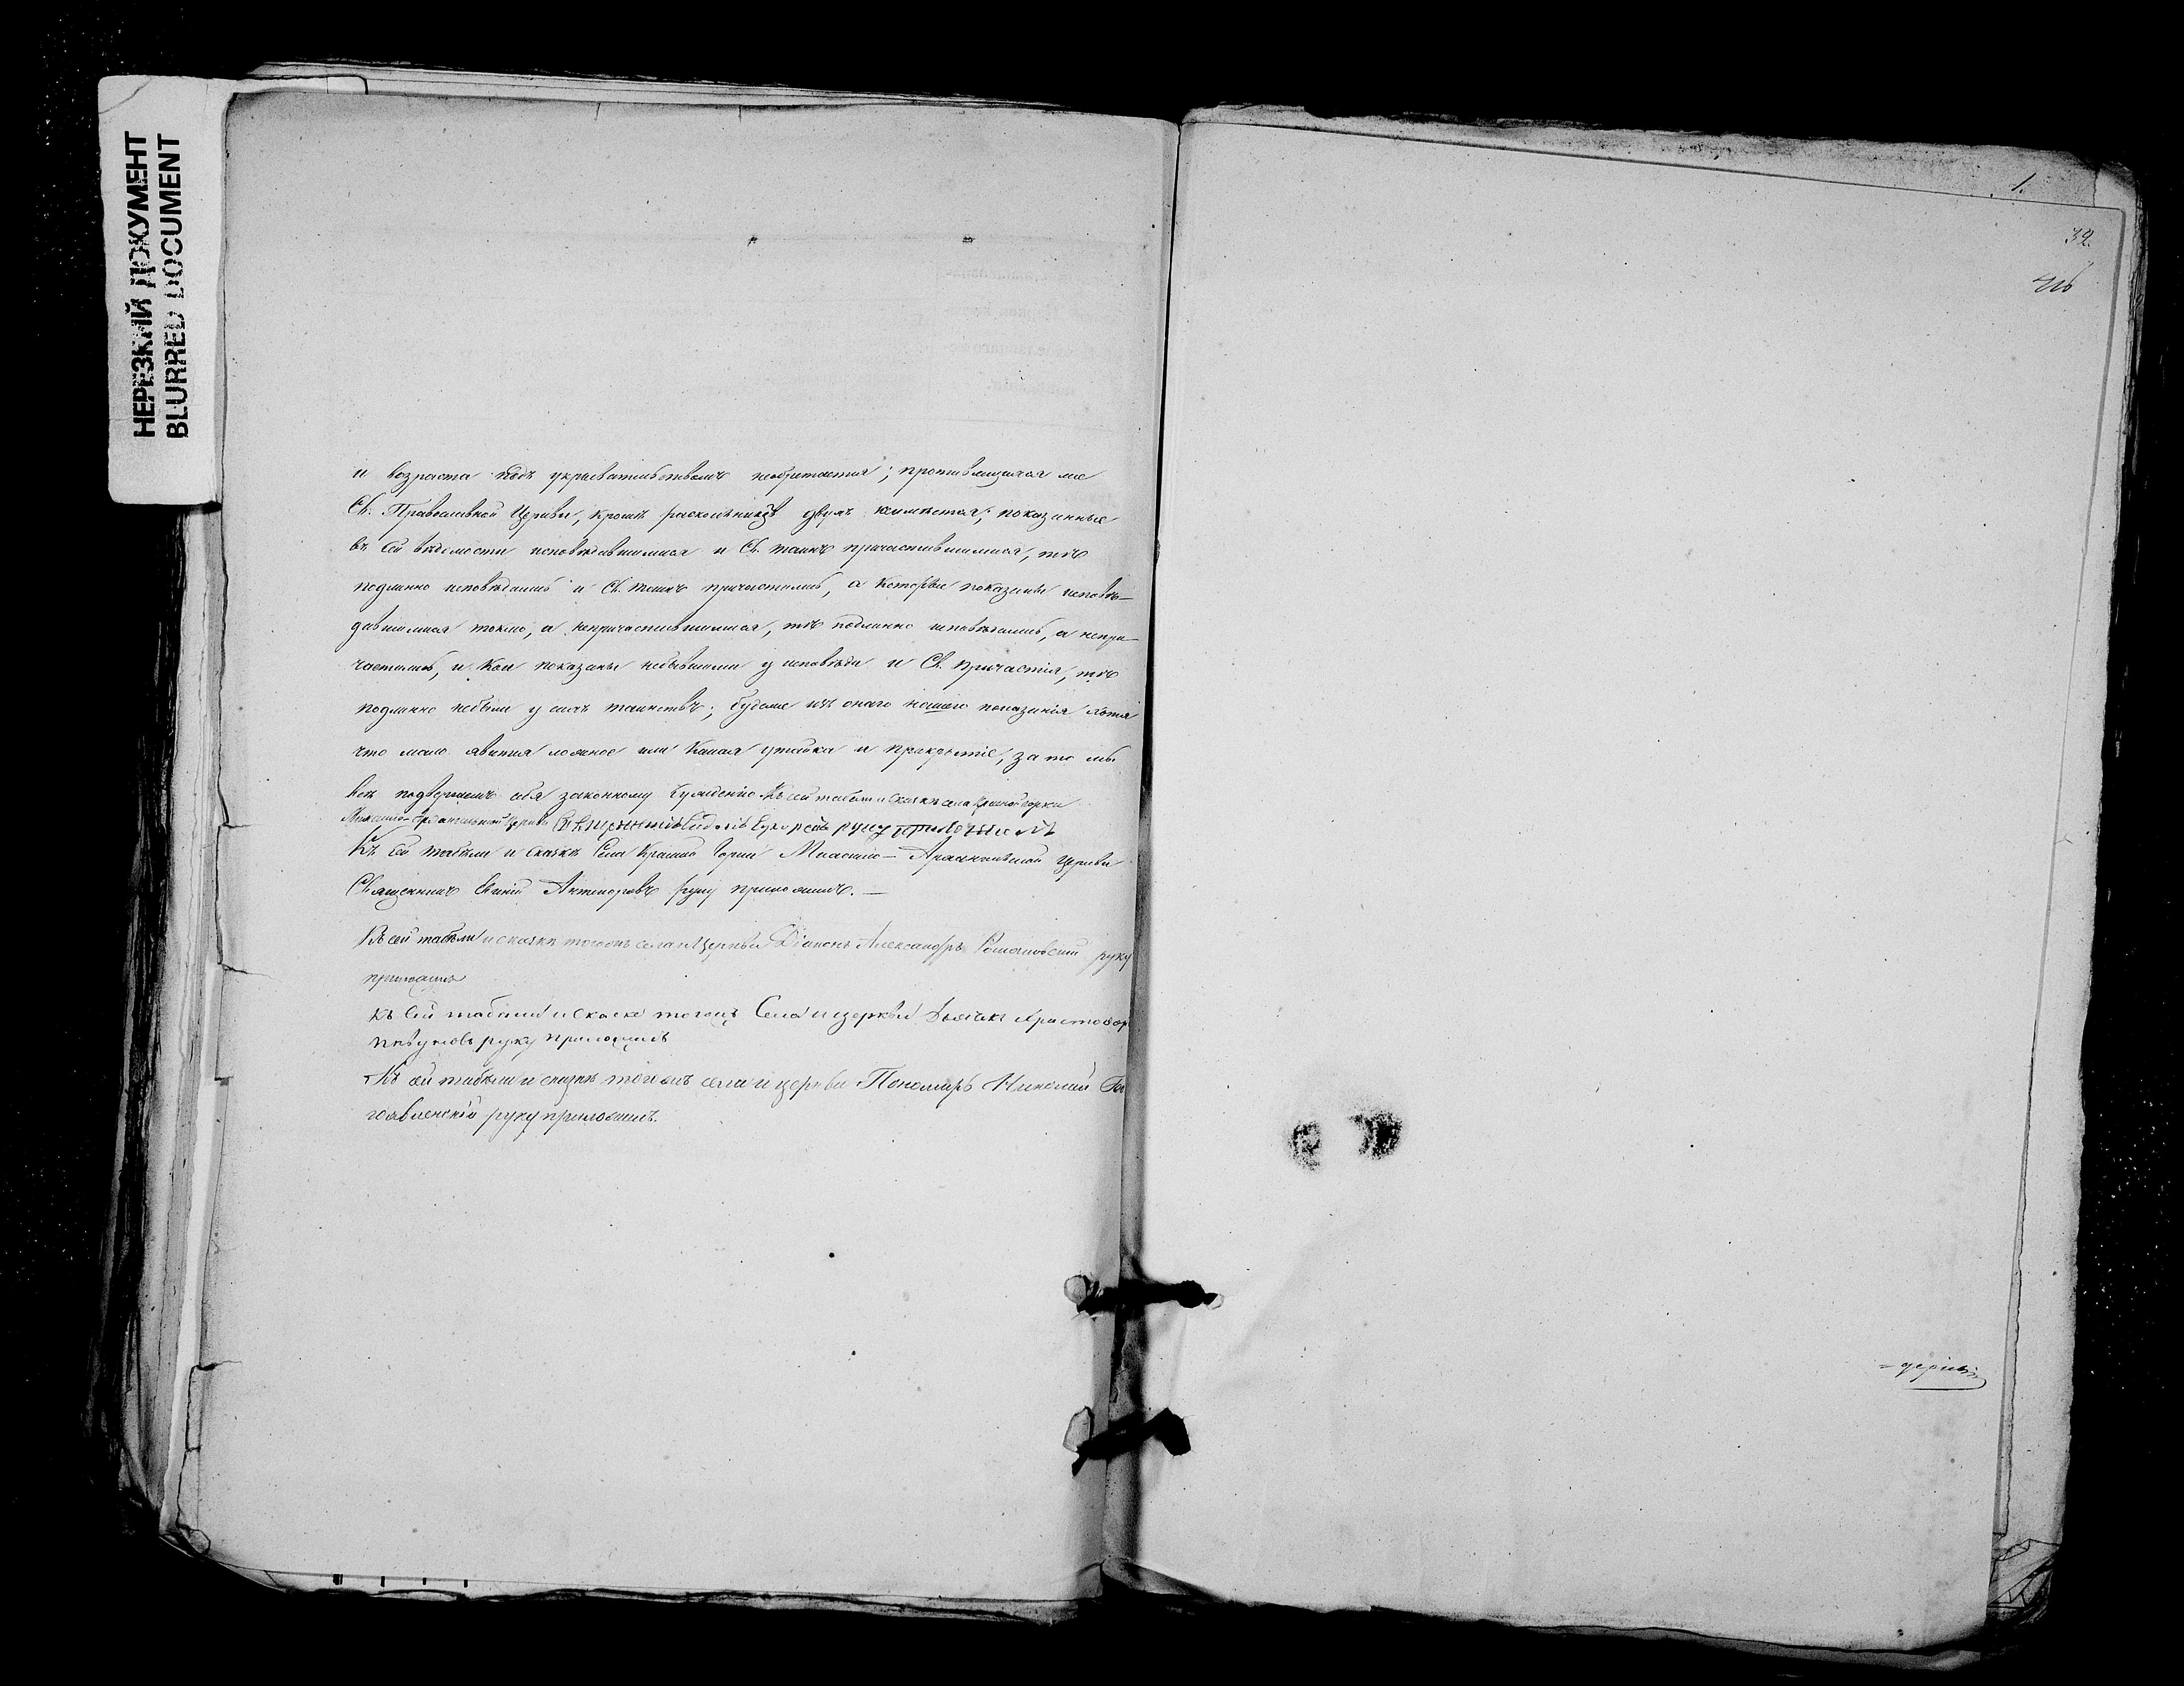 НЕРЕЗКИЙ ДОКУМЕНТ
BLURRED DOCUMENT
и возраста подъ укрывательствомъ необретается; противящихся же
Св. Православной Церкви, кромѣ раскольниковъ двухъ неимѣется; показанные
въ сей вѣдомости исповѣдавшимися и Св. таинъ причастившимися, тѣ
подлинно исповѣдались и Св. таинъ причастились, а которые показаны исповѣ-
давшимися токмо, а непричастившимися, тѣ подлинно исповѣдались, а непри-
частились, и кои показаны небывшими у исповѣди и Св. причастія, тѣ
подлинно небыли у сихъ таинствъ; будеже изъ онаго нашего показанія хотя
что мало явится ложное или какая утайка и прикрытіе, за то мы
всѣ подвергаемъ себя законному сужденію Къ сей табели и сказкѣ села Красной горки
Михаило-Архангельской Церкви Священникъ руку приложилъ
Къ сей табели и сказкѣ Села Красной Горки Михаило-Архангельской Церкви
Священникъ руку приложилъ.—
Къ сей табели и сказкѣ тогожъ села и Церкви Діаконъ Александръ Романовскій руку
приложилъ
Къ сей табели и скаске тогожъ Села и церкви Дьячекъ Христофор
руку приложилъ
Къ сей табели и сказкѣ тогожъ села и церкви Пономарь Николай Бо
гоявленскій руку приложилъ.
1.
32.